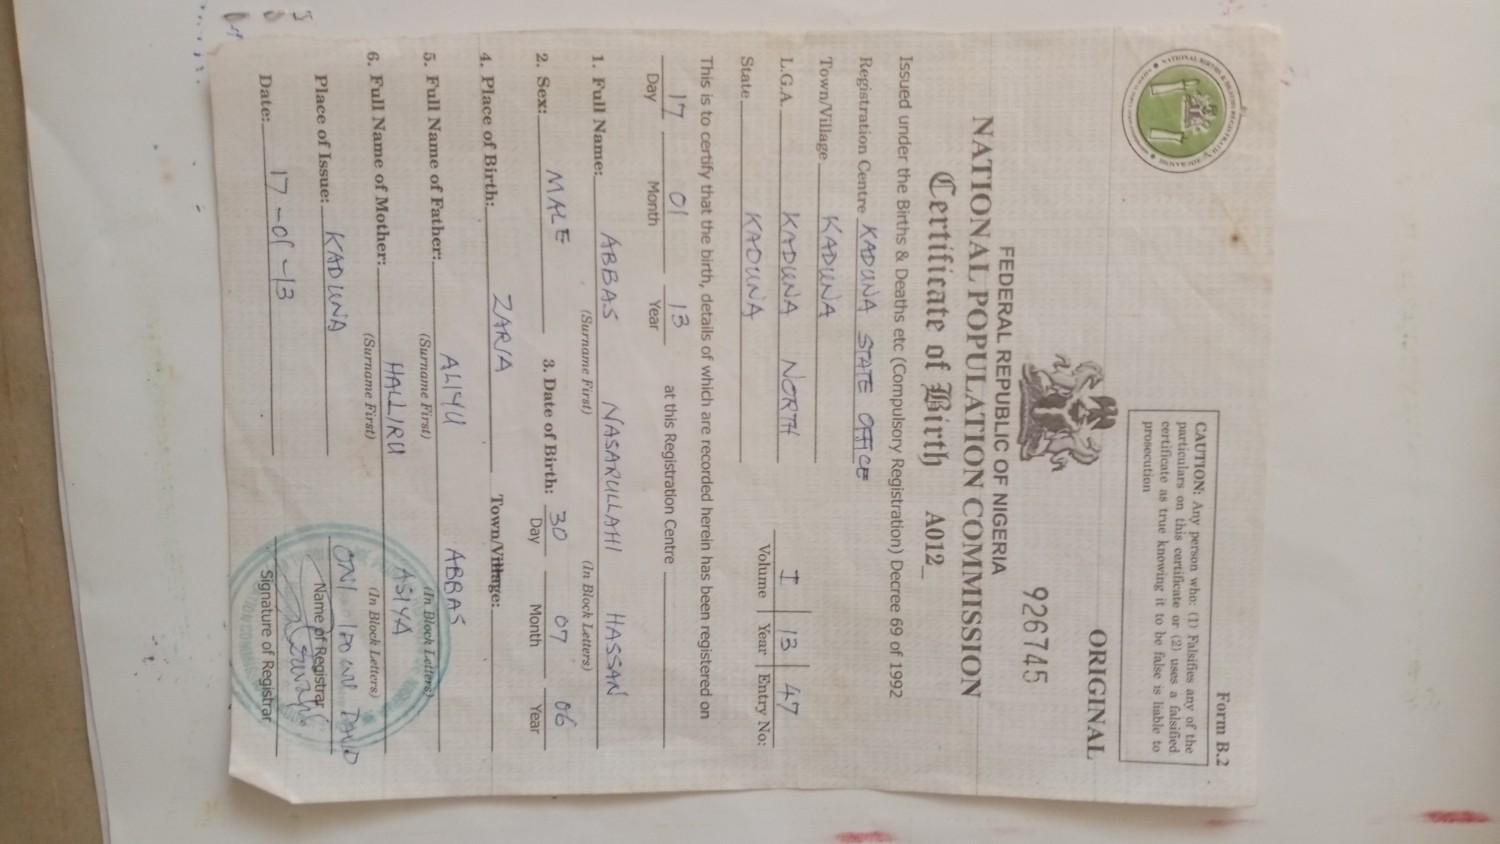 Form B.2
CAUTION: Any person who: (1) Falsifies any of the
particulars on this certificate or (2) uses a falsified
certificate as true knowing it to be false is liable to
prosecution
ORIGINAL
926745
FEDERAL REPUBLIC OF NIGERIA
NATIONAL POPULATION COMMISSION
Certificate of Birth A012_
Issued under the Births & Deaths etc (Compulsory Registration) Decree 69 of 1992
Registration Centre KADUNA STATE OFFICE
Town/Village KADUNA
L.G.A. KADUNA NORTH I 13 47
State KADUNA Volume Year Entry No:
This is to certify that the birth, details of which are recorded herein has been registered on
17 01 13 at this Registration Centre
Day Month Year
1. Full Name: ABBAS NASARULLAHI HASSAN
(Surname First) (In Block Letters)
2. Sex: MALE 3. Date of Birth: 30 07 06
Day Month Year
4. Place of Birth: ZARIA Town/Village:
5. Full Name of Father: ALIYU ABBAS
(Surname First) (In Block Letters)
6. Full Name of Mother: HALLIRU ASIYA
(Surname First) (In Block Letters)
Place of Issue: KADUNA ONI DAVID
Name of Registrar
Date: 17-01-13
Signature of Registrar